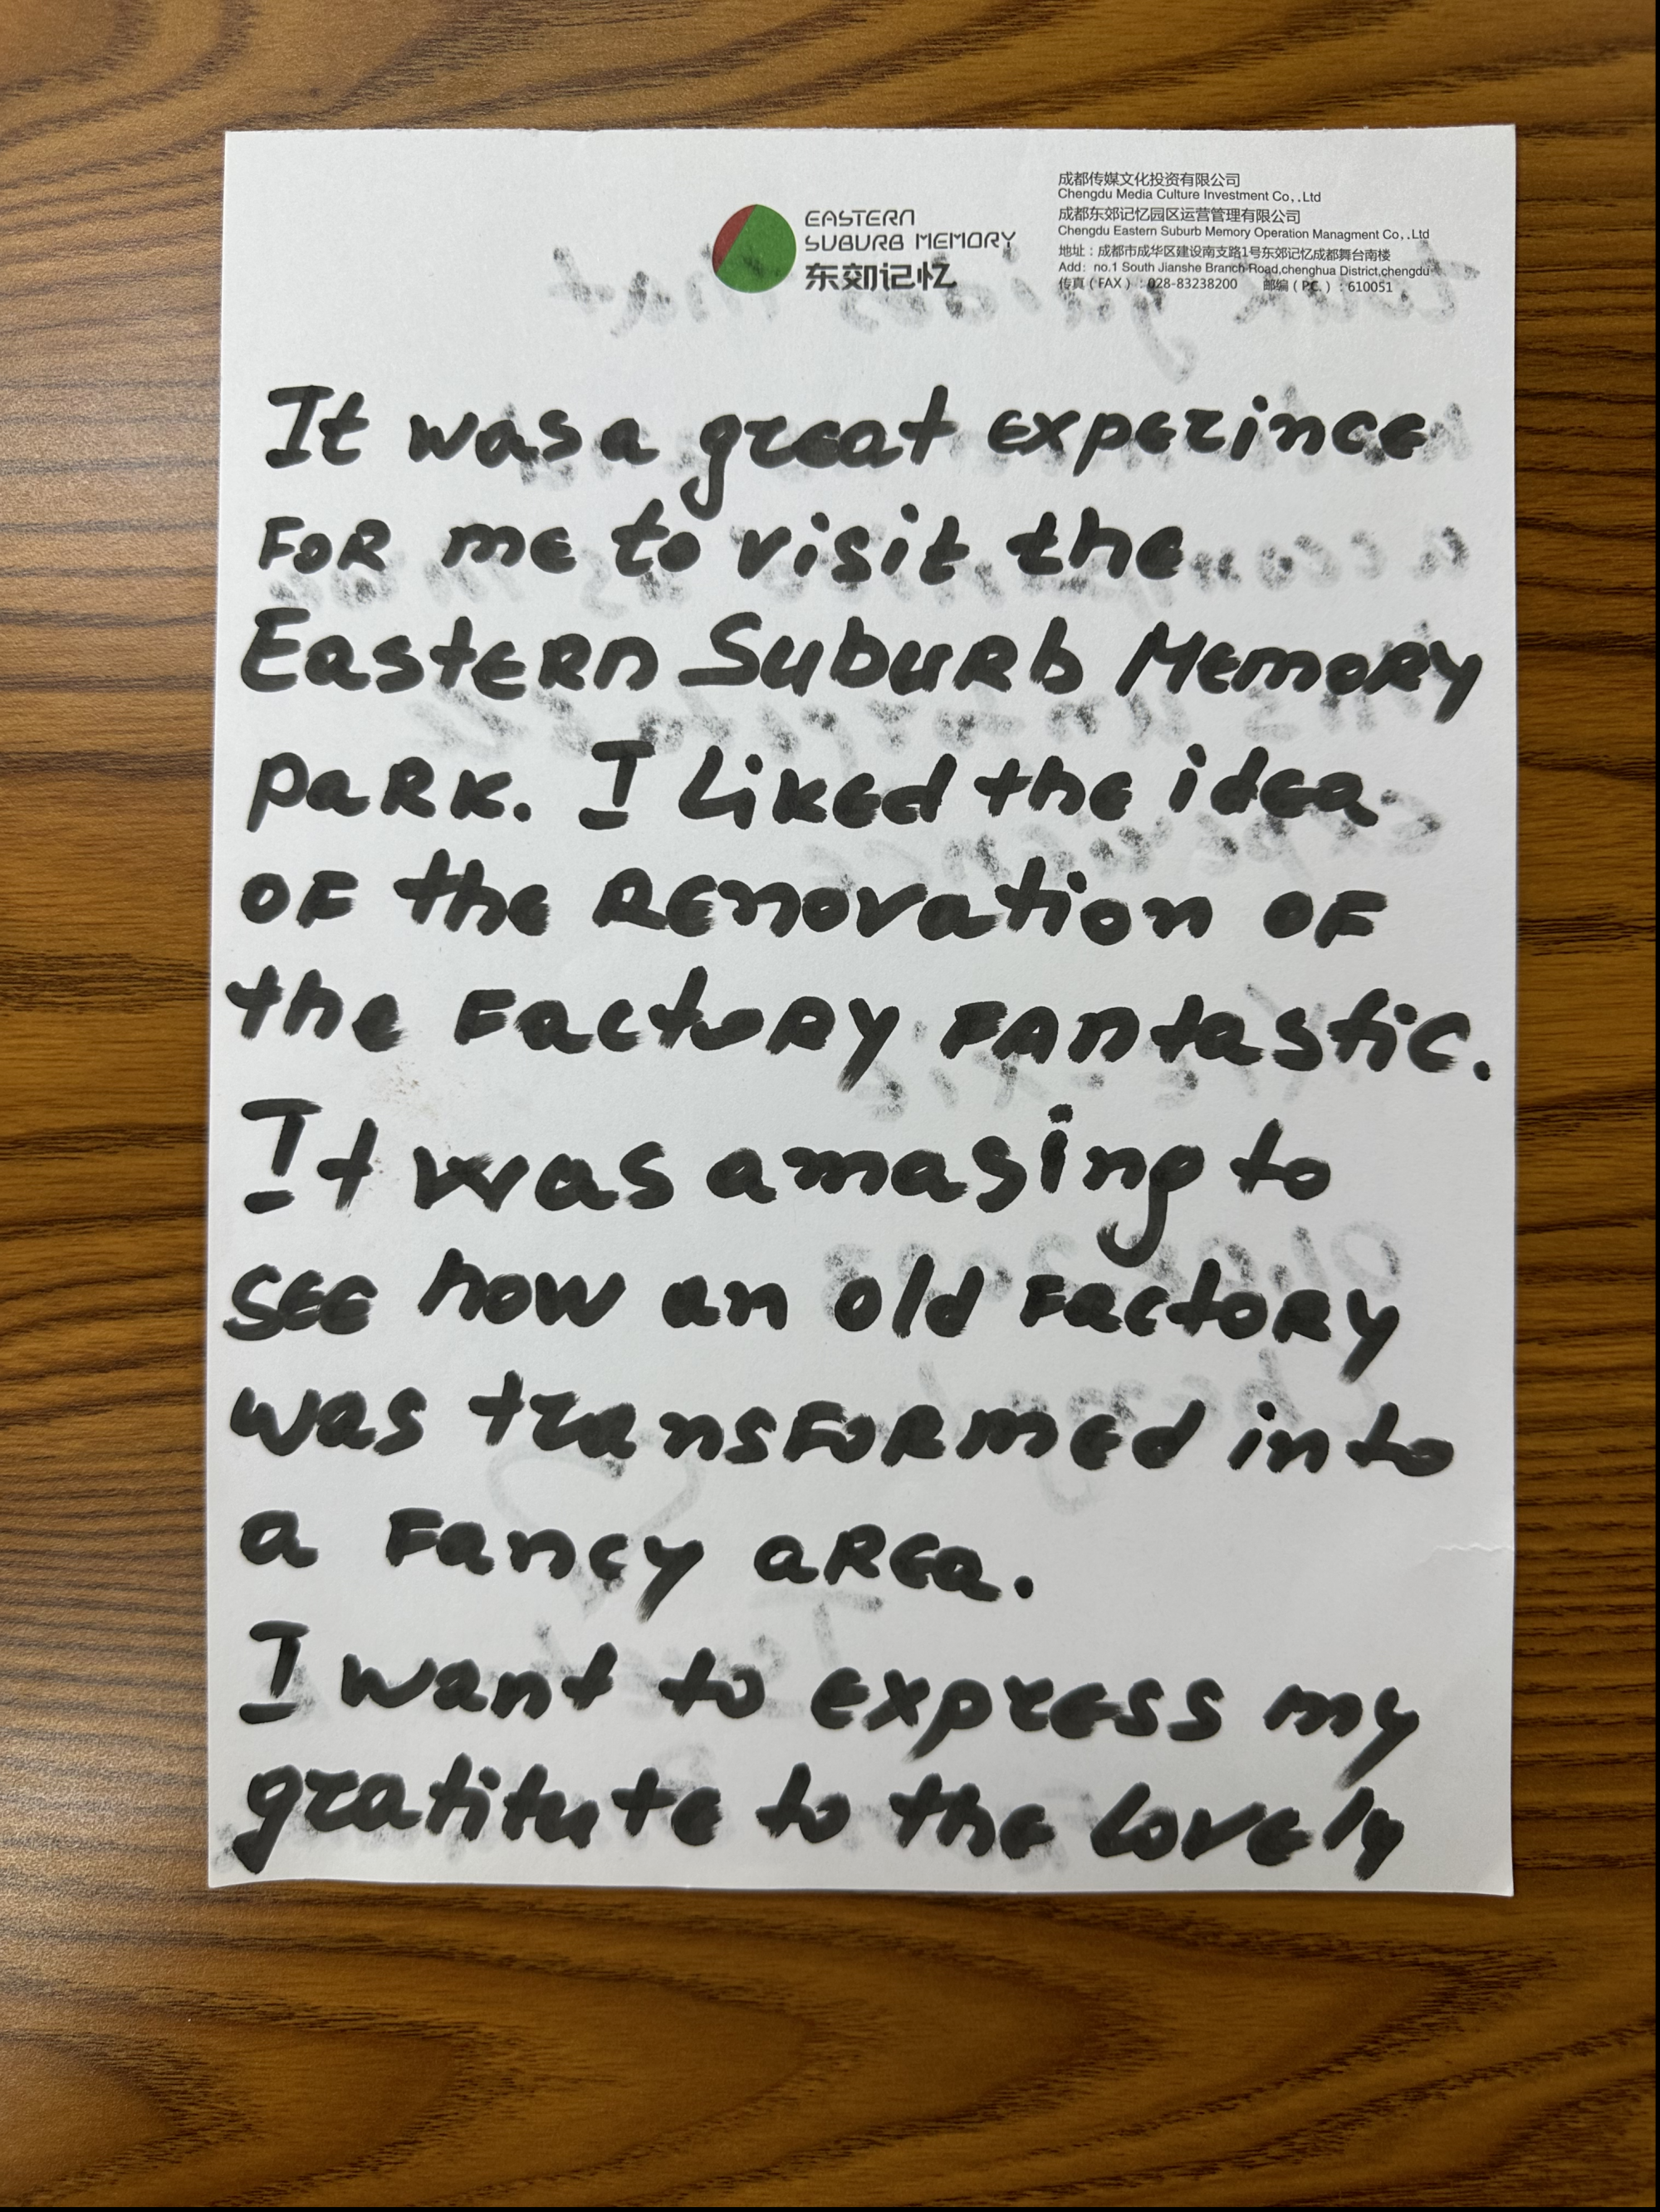 EASTERN
SUBURB MEMORY
东郊记忆
成都传媒文化投资有限公司
Chengdu Media Culture Investment Co,.Ltd
成都东郊记忆园区运营管理有限公司
Chengdu Eastern Suburb Memory Operation Managment Co,.Ltd
地址：成都市成华区建设南支路1号东郊记忆成都舞台南楼
Add: no.1 South Jianshe Branch Road,chenghua District,chengdu
传真（FAX）：028-83238200 邮编（P.C.）：610051
It was a great experince
for me to visit the
Eastern Suburb Memory
park. I liked the idea
of the renovation of
the factory fantastic.
It was amasing to
see how an old factory
was transformed into
a fancy area.
I want to express my
gratitute to the lovely